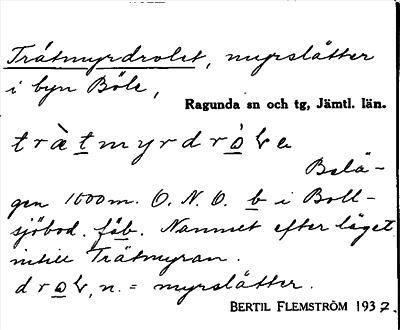 Tråtmyrdrolet, myrslåtter
i byn Böle,
Ragunda sn och tg, Jämtl. län.
tràtmyrdròLe
Belä-
gen 1600 m. O. N. O. b i Boll-
sjöbod. fäb. Namnet efter läget
intill Tråtmyran.
droL, n. = myrslåtter.
BERTIL FLEMSTRÖM 1937.